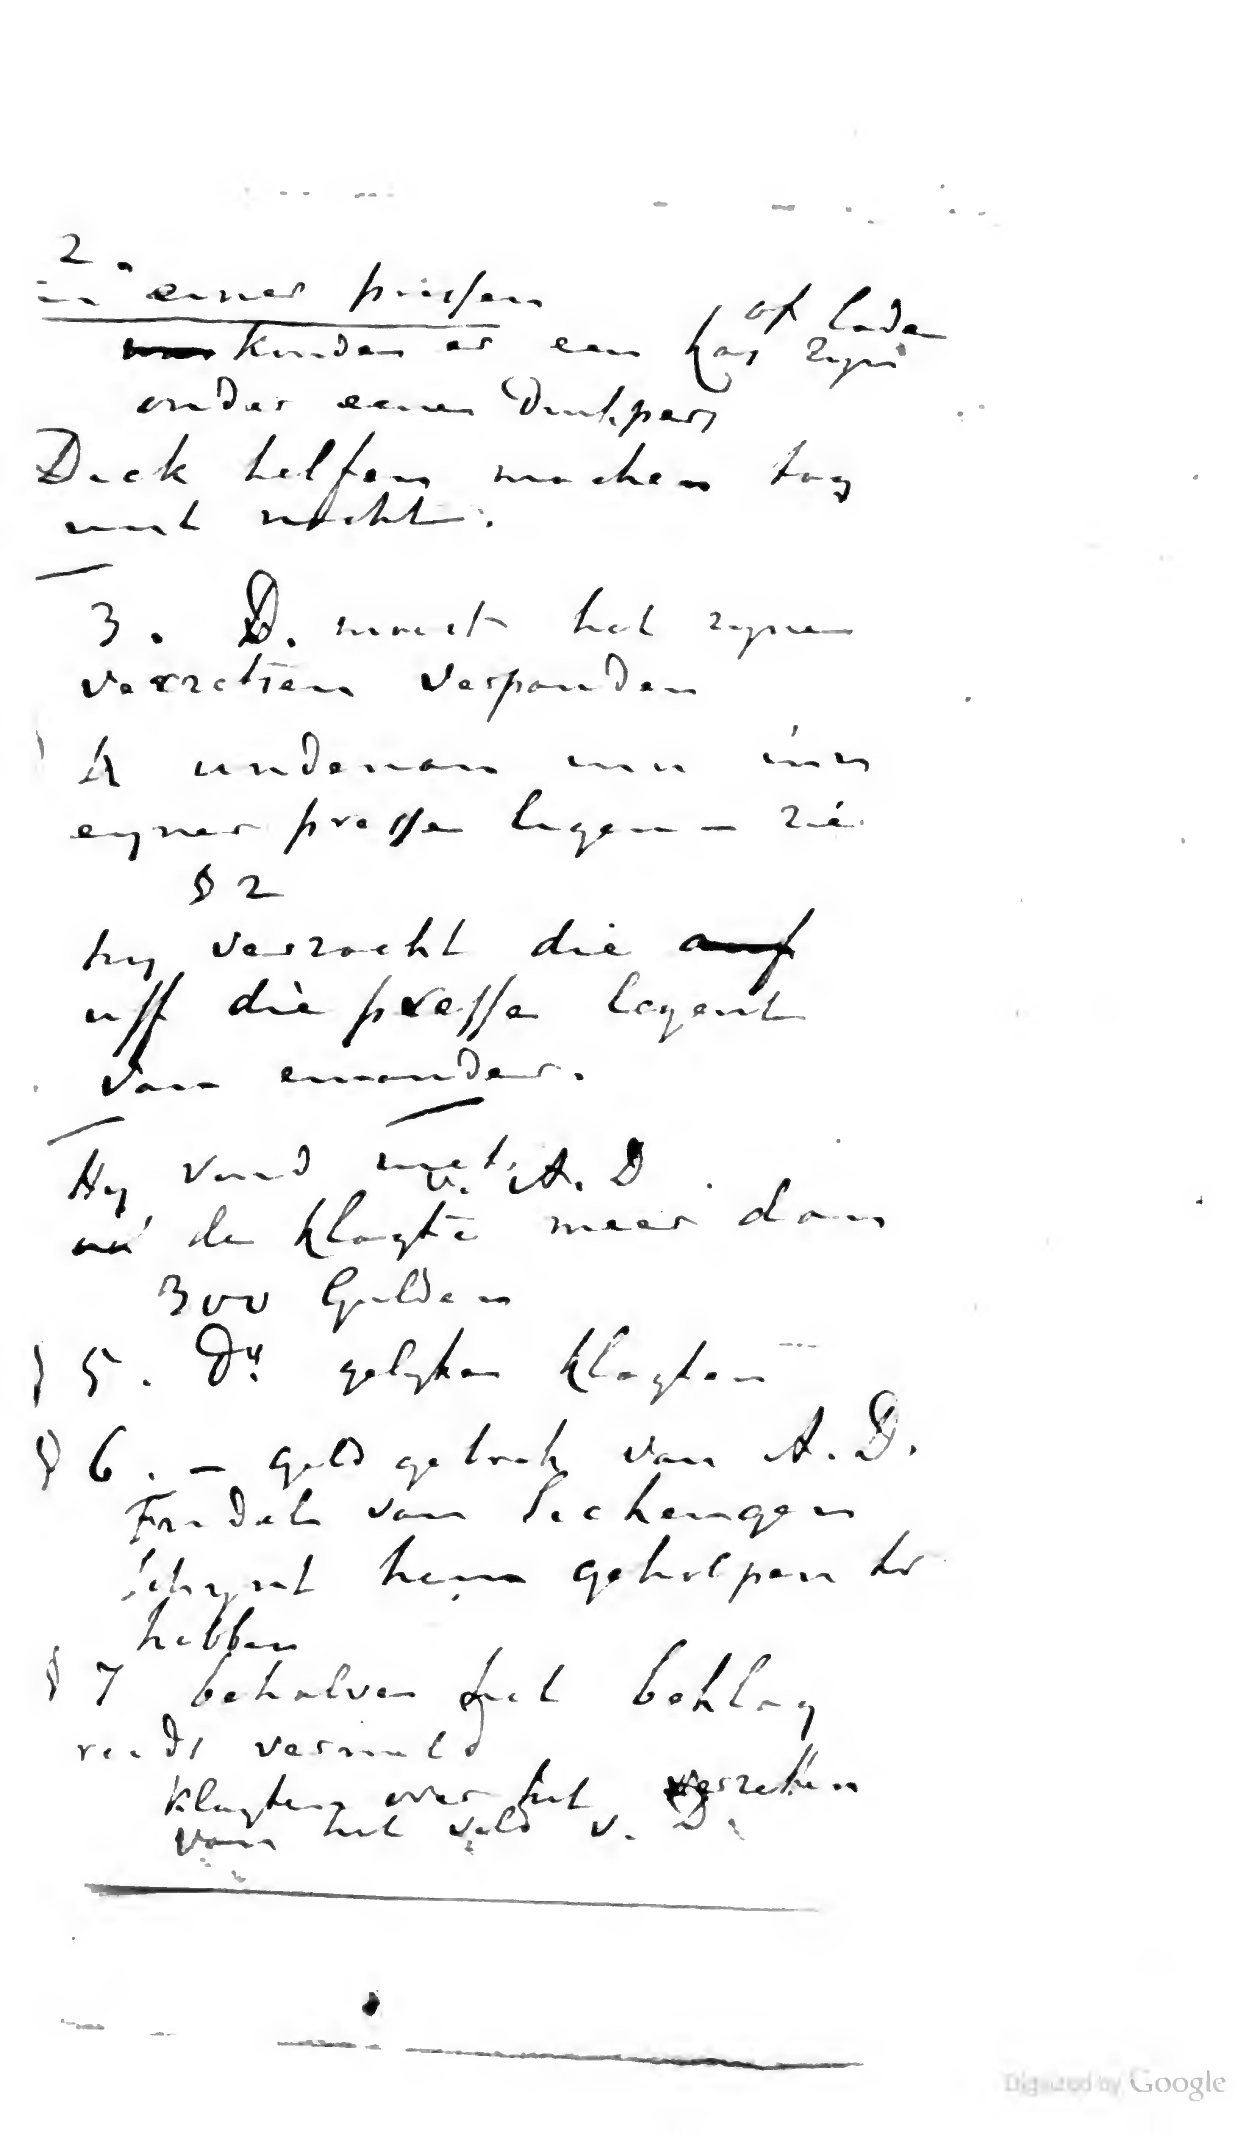 2.
in einer pressen
of laden
kunden er een kas zyn
onder eenen Drukpers
Dick helfen machen tag
und nacht.
3. D. moest het zynen
verzetten verpanden
undenan
eyner presse ligen — zie
§ 2
hy verzocht die auf
uff die presse legent
van einander.
Hy vand met
v. A. D
uit de klagte meer dan
300 Gulden
§ 5. Do gelyken klagten
§ 6. — geld gebrek van A. D.
Fridel van Seckengen
schynt hem geholpen te
hebben
§ 7 behalven het beklag
reeds vermeld
klagten over het verzetten
van het veld v. D.
Digitized by Google